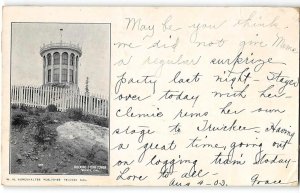 May be you think
we did not give Mama
a regular surprize
party last night - Stayed
over today with her
Clemie rems her own
stage to Truckee. Having
a great time, going out
on logging train today
Love to all
Aug 4-03. Grace
ROCKING STONE TOWER
PUBLISHER TRUCKEE CAL.